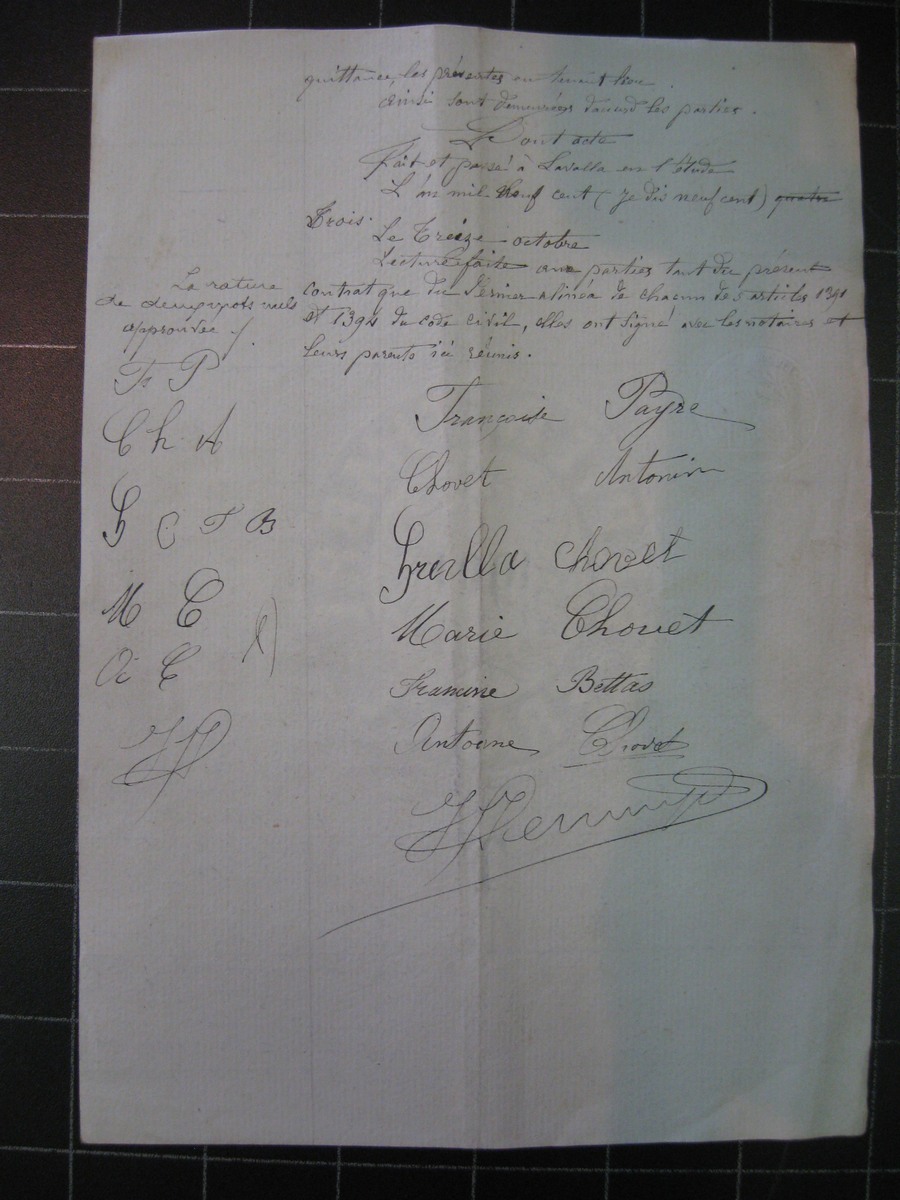 quittance, les présentes en tenant lieu.
ainsi sont demeurées d'accord les parties.
Dont acte
Fait et passé à Lavalla en l'étude
L'an mil neuf cent (je dis neuf cent) quatre
Trois.
Le Treize octobre
Lecture faite aux parties tant du présent
contrat que du dernier alinéa de chacun des articles 1391
et 1394 du code civil, elles ont signé avec les notaires et
leurs parents ici réunis.
La rature
de deux mots nuls
approuvée ./.
Fs P
Ch A
G C F B
M C
A C
Françoise Payre
Chovet Antonin
Chovet
Marie Chouet
Francine Bettas
Antoine Chovet